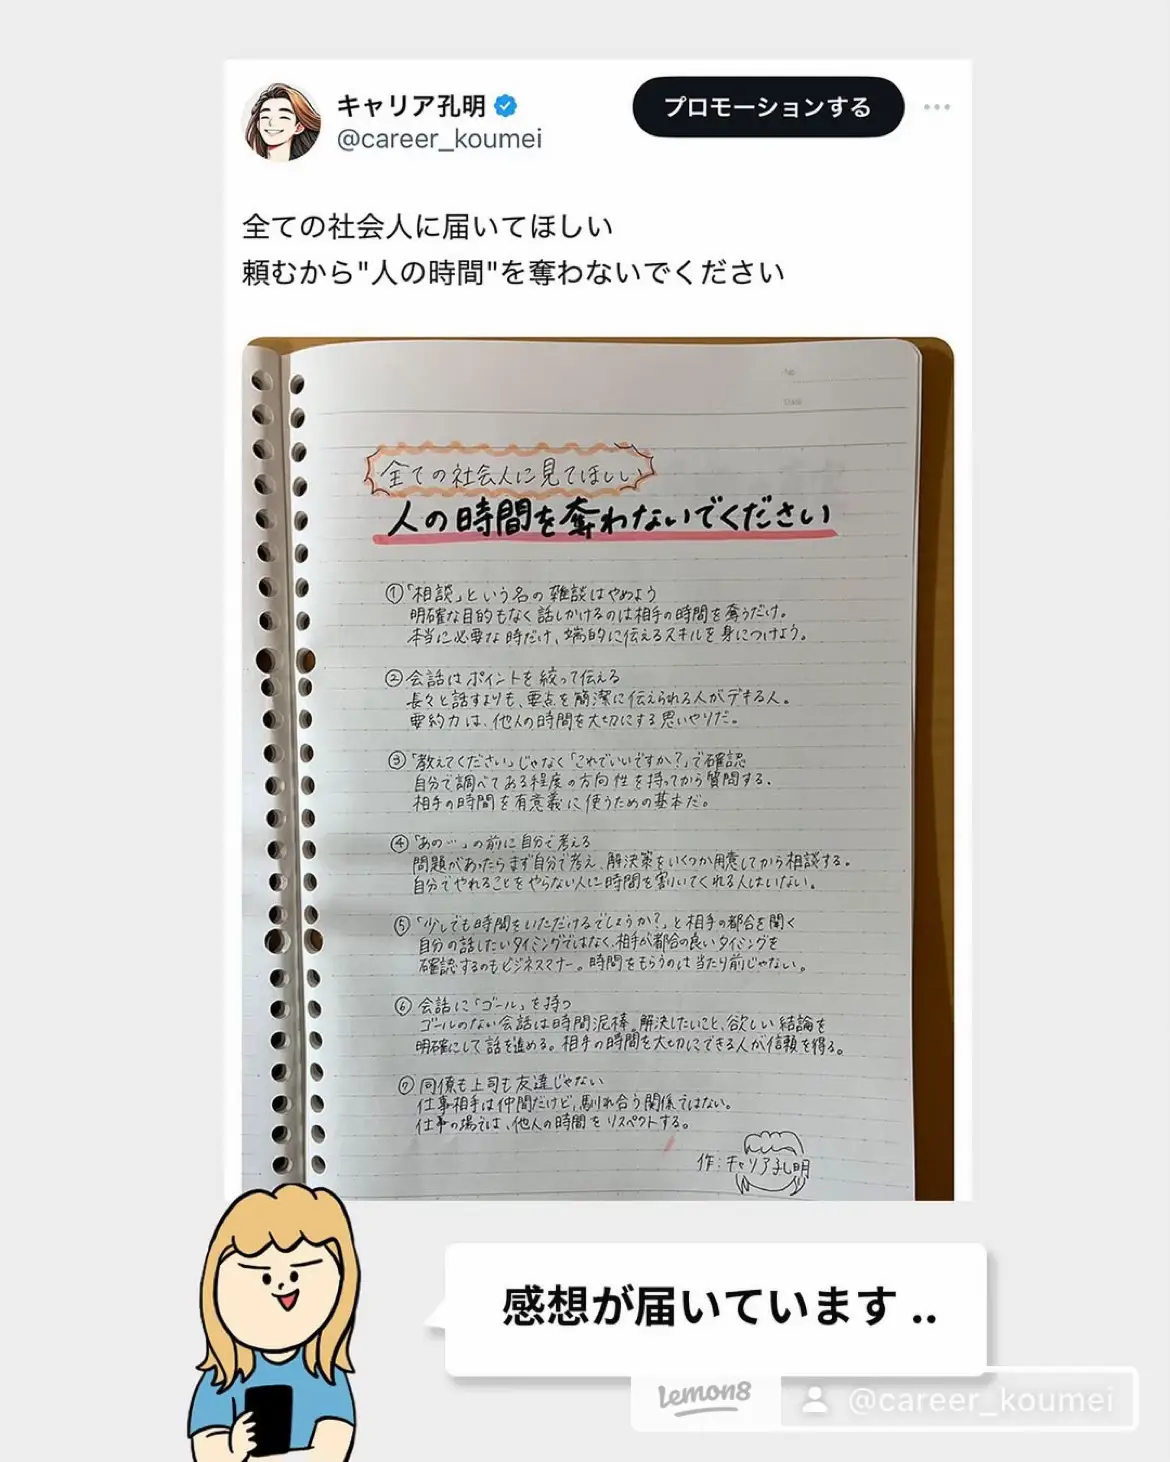 キャリア孔明
@career_koumei
プロモーションする
全ての社会人に届いてほしい
頼むから"人の時間"を奪わないでください
全ての社会人に見てほしい
人の時間を奪わないでください
①「相談」という名の雑談はやめよう
明確な目的もなく話しかけるのは相手の時間を奪うだけ。
本当に必要な時だけ、端的に伝えるスキルを身につけよう。
②会話はポイントを絞って伝える
長々と話すよりも、要点を簡潔に伝えられる人がデキる人。
要約力は、他人の時間を大切にする思いやりだ。
③「教えてください」じゃなく「これでいいですか?」で確認
自分で調べてある程度の方向性を持ってから質問する。
相手の時間を有意義に使うための基本だ。
④「あの…」の前に自分で考える
問題があったらまず自分で考え、解決策をいくつか用意してから相談する。
自分でやれることをやらない人に時間を割いてくれる人はいない。
⑤「少しでも時間をいただけるでしょうか?」と相手の都合を聞く
自分の話したいタイミングではなく、相手が都合の良いタイミングを
確認するのもビジネスマナー。時間をもらうのは当たり前じゃない。
⑥会話に「ゴール」を持つ
ゴールのない会話は時間泥棒。解決したいこと、欲しい結論を
明確にして話を進める。相手の時間を大切にできる人が信頼を得る。
⑦同僚も上司も友達じゃない
仕事相手は仲間だけど、馴れ合う関係ではない。
仕事の場では、他人の時間をリスペクトする。
作:キャリア孔明
感想が届いています..
lemon8
@career_koumei